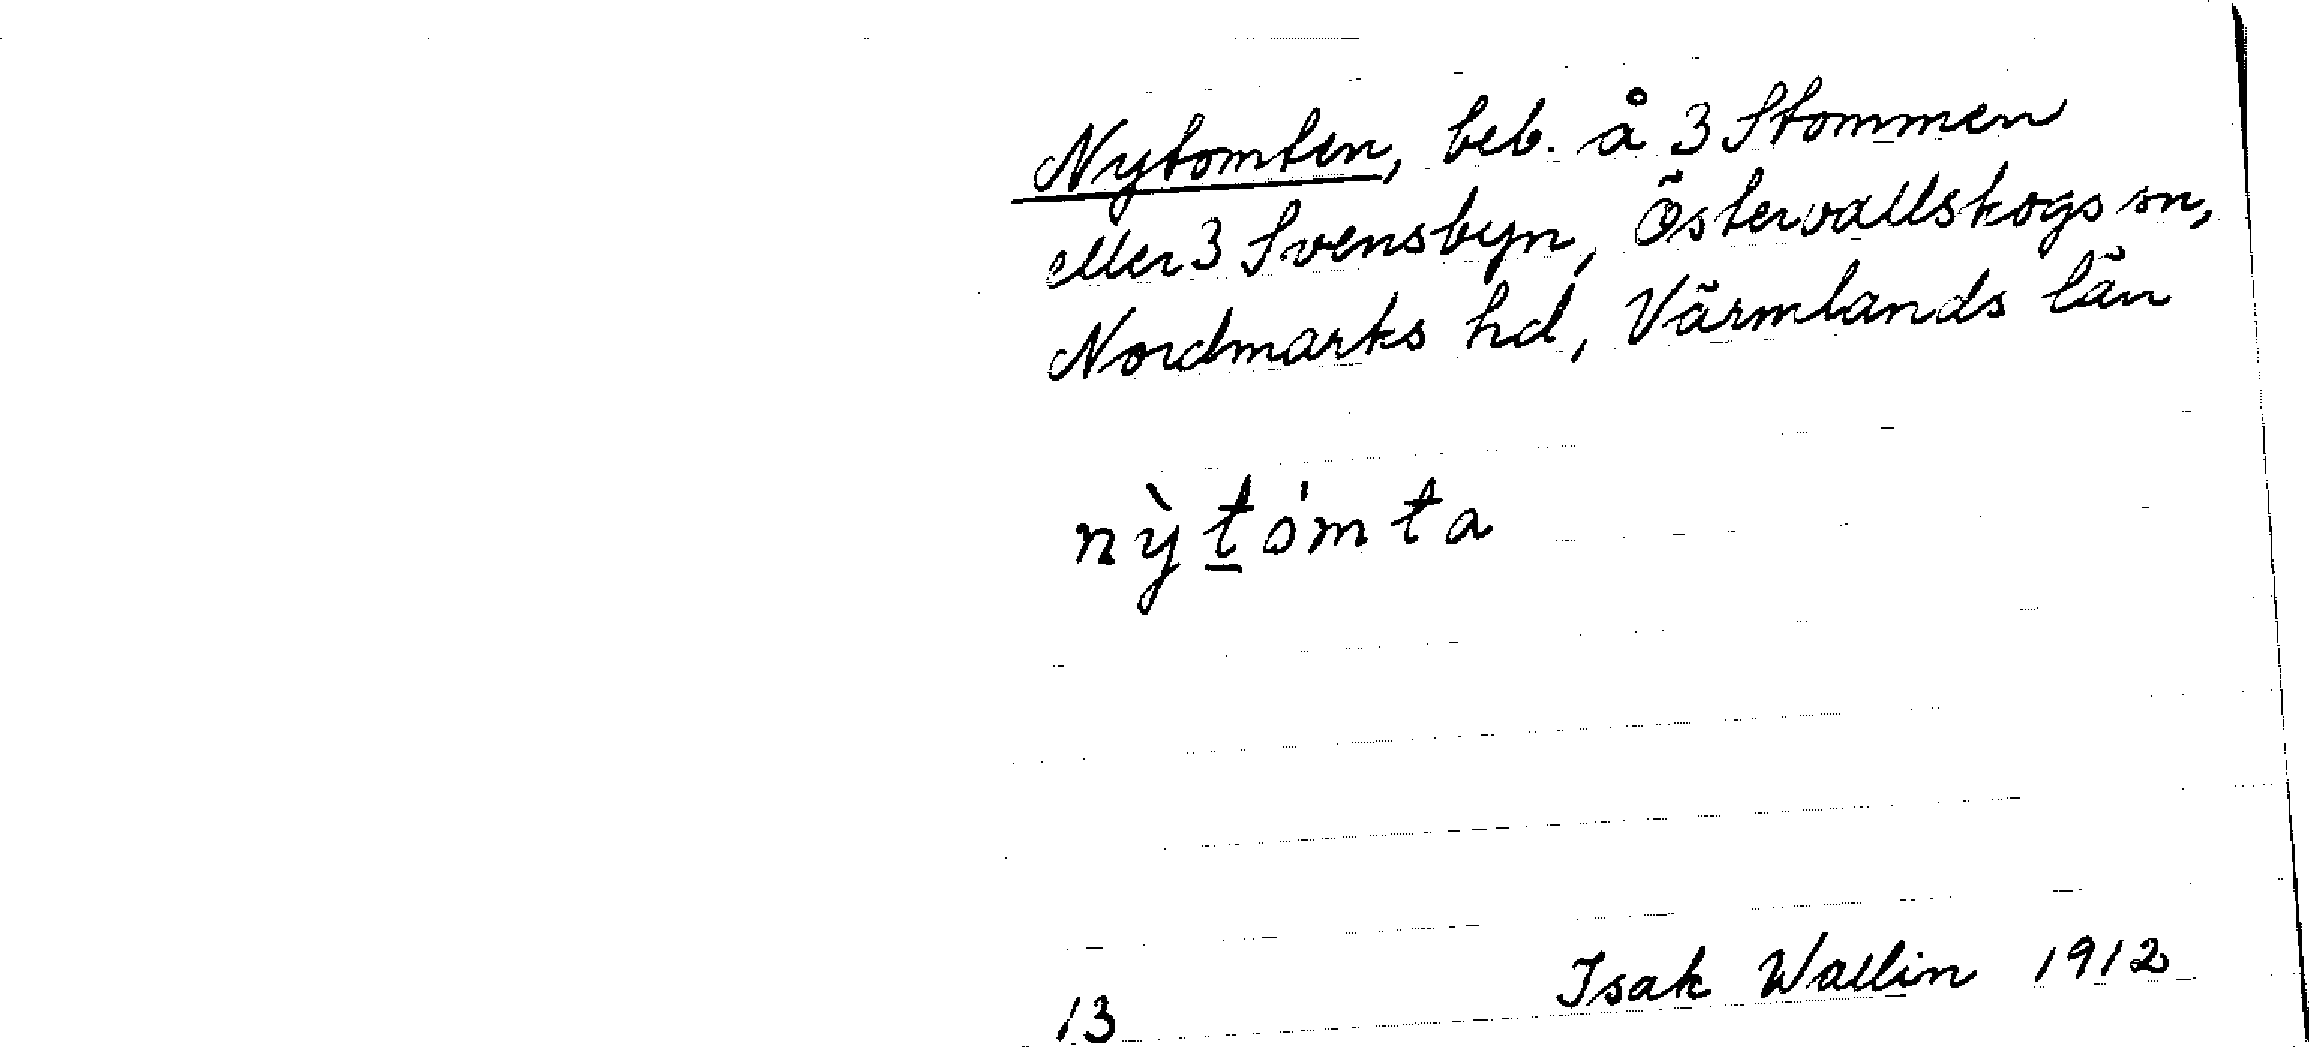 Nytomten, beb. å 3 Stommen
eller 3 Svensbyn, Östervallskogs sn,
Nordmarks hd, Värmlands län
nỳt̲ómta
13 Isak Wallin 1912